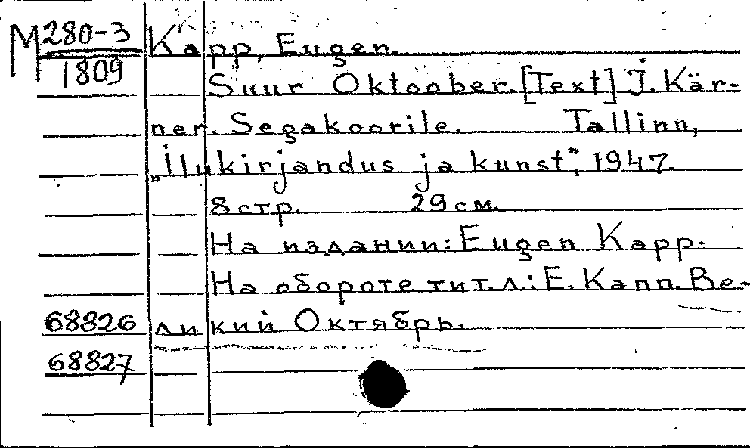 M 280-3 Kapp, Eugen.
1809 Suur Oktoober. [Text] J. Kär-
ner. Segakoorile. Tallinn,
„Ilukirjandus ja kunst”, 1947.
8 стр. 29 см.
На издании: Eugen Kapp.
На обороте тит. л.: Е. Капп. Ве-
68826 ликий Октябрь.
68827